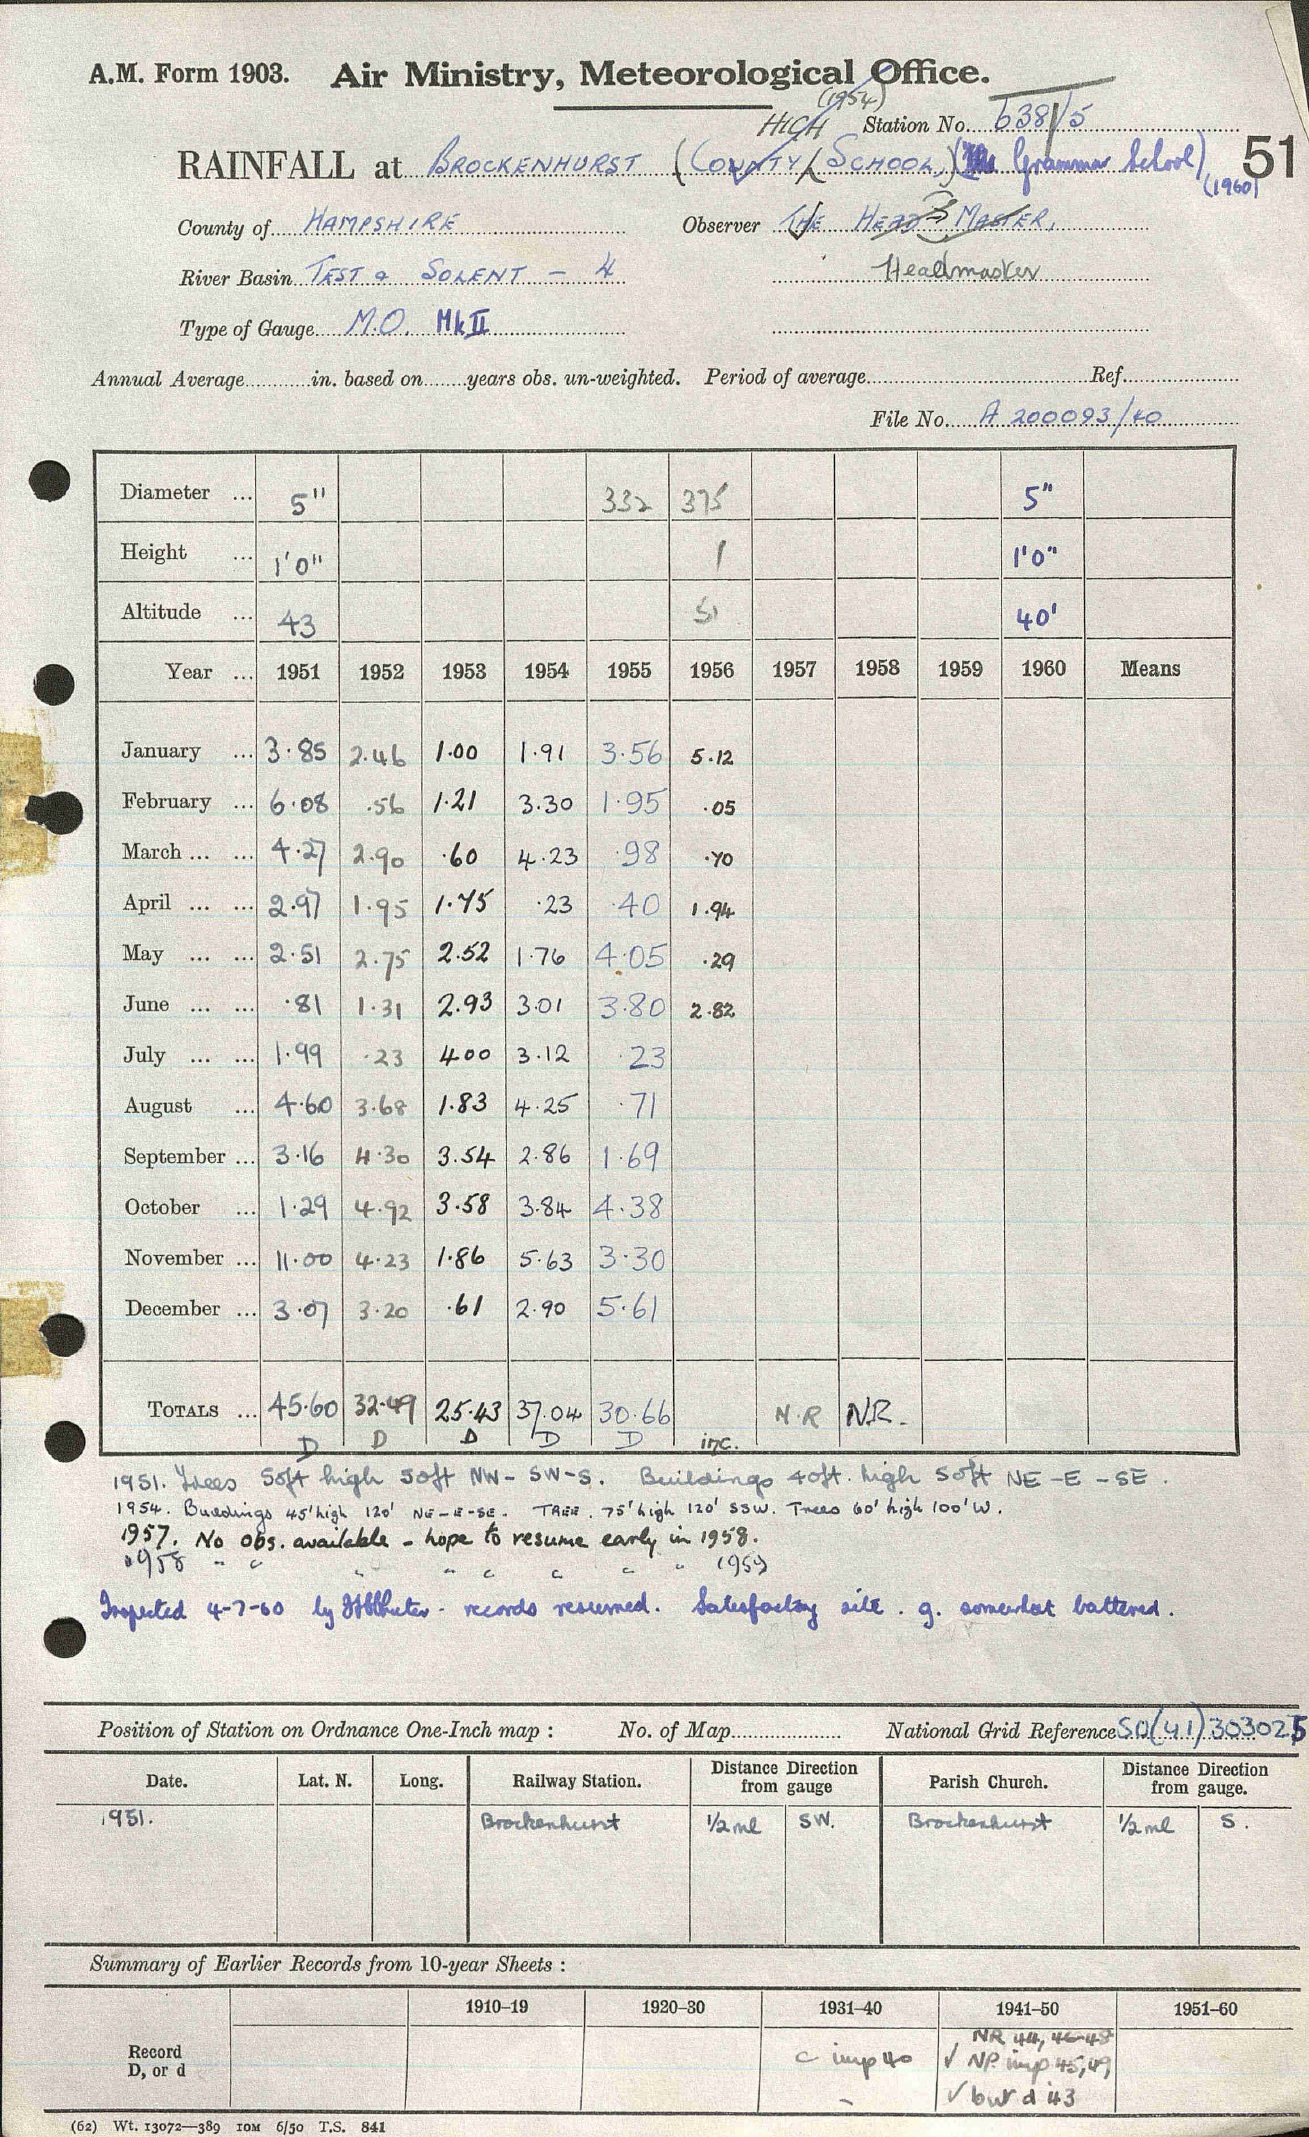 A.M. Form 1903. Air Ministry, Meteorological Office.
HIGH (1954) Station No. 638/5
RAINFALL at BROCKENHURST (COUNTY SCHOOL) The Grammar School) (1960) 51
County of HAMPSHIRE Observer THE HEAD MASTER,
River Basin TEST & SOLENT - 4 Headmaster
Type of Gauge M.O. Mk II
Annual Average in. based on years obs. un-weighted. Period of average Ref.
File No. A 200093/40
Diameter ... 5" 332 375 5"
Height ... 1'0" 1 1'0"
Altitude ... 43 51 40'
Year ... 1951 1952 1953 1954 1955 1956 1957 1958 1959 1960 Means
January ... 3.85 2.46 1.00 1.91 3.56 5.12
February ... 6.08 .56 1.21 3.30 1.95 .05
March ... ... 4.27 2.90 .60 4.23 .98 .70
April ... ... 2.97 1.95 1.75 .23 .40 1.94
May ... ... 2.51 2.75 2.52 1.76 4.05 .29
June ... ... .81 1.31 2.93 3.01 3.80 2.82
July ... ... 1.99 .23 4.00 3.12 .23
August ... 4.60 3.68 1.83 4.25 .71
September ... 3.16 4.30 3.54 2.86 1.69
October ... 1.29 4.92 3.58 3.84 4.38
November ... 11.00 4.23 1.86 5.63 3.30
December ... 3.07 3.20 .61 2.90 5.61
TOTALS ... 45.60 32.49 25.43 37.04 30.66 N.R N.R.
D D D D D inc.
1951. Trees 50ft high 50ft NW - SW - S. Buildings 40ft. high 50ft NE - E - SE.
1954. Buildings 45' high 120' NE - E - SE. TREE. 75' high 120' SSW. Trees 60' high 100' W.
1957. No obs. available - hope to resume early in 1958.
1958 " " " " " " " " 1959
Inspected 4-7-60 by - records resumed. Satisfactory site. g. somewhat battered.
Position of Station on Ordnance One-Inch map : No. of Map National Grid Reference SU(41)303025
Date. Lat. N. Long. Railway Station. Distance Direction from gauge Parish Church. Distance Direction from gauge.
1951. Brockenhurst 1/2 ml SW. Brockenhurst 1/2 ml S.
Summary of Earlier Records from 10-year Sheets :
1910–19 1920–30 1931–40 1941–50 1951–60
Record D, or d c imp 40 - NR 44, 46-48
✓ NP imp 45,49,
✓ but d 43
(62) Wt. 13072—389 10M 6/50 T.S. 841